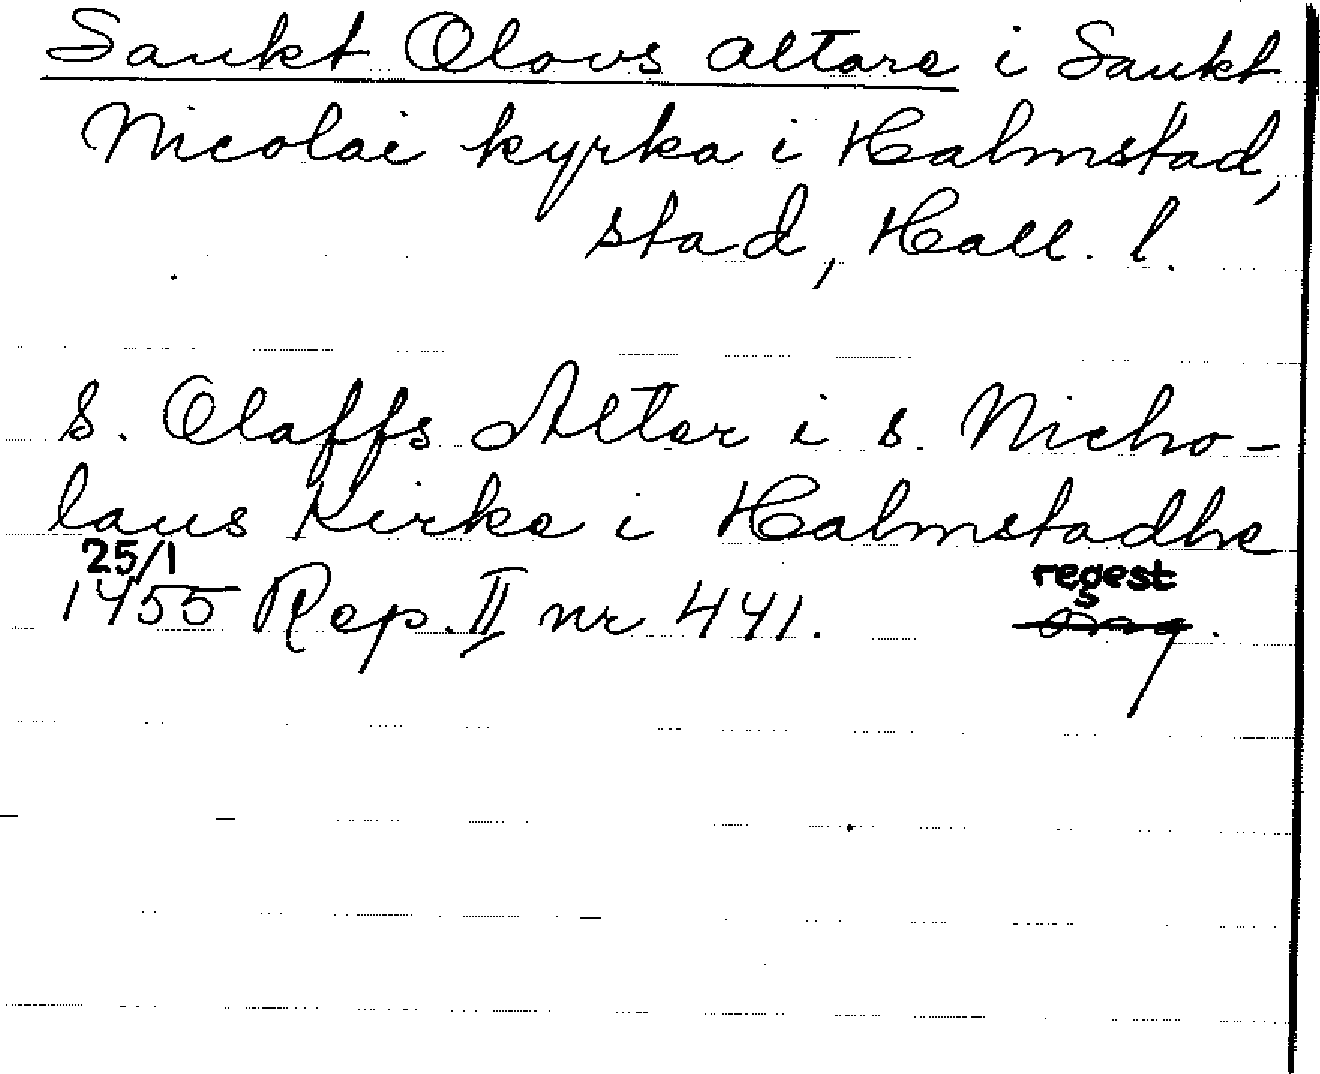 Sankt Olovs altare i Sankt
Nicolai kyrka i Halmstad,
stad, Hall. l.
S. Olaffs Altar i s. Nicho-
laus Kirke i Halmstadhe
25/1
1455 Rep. II nr 441.
regest